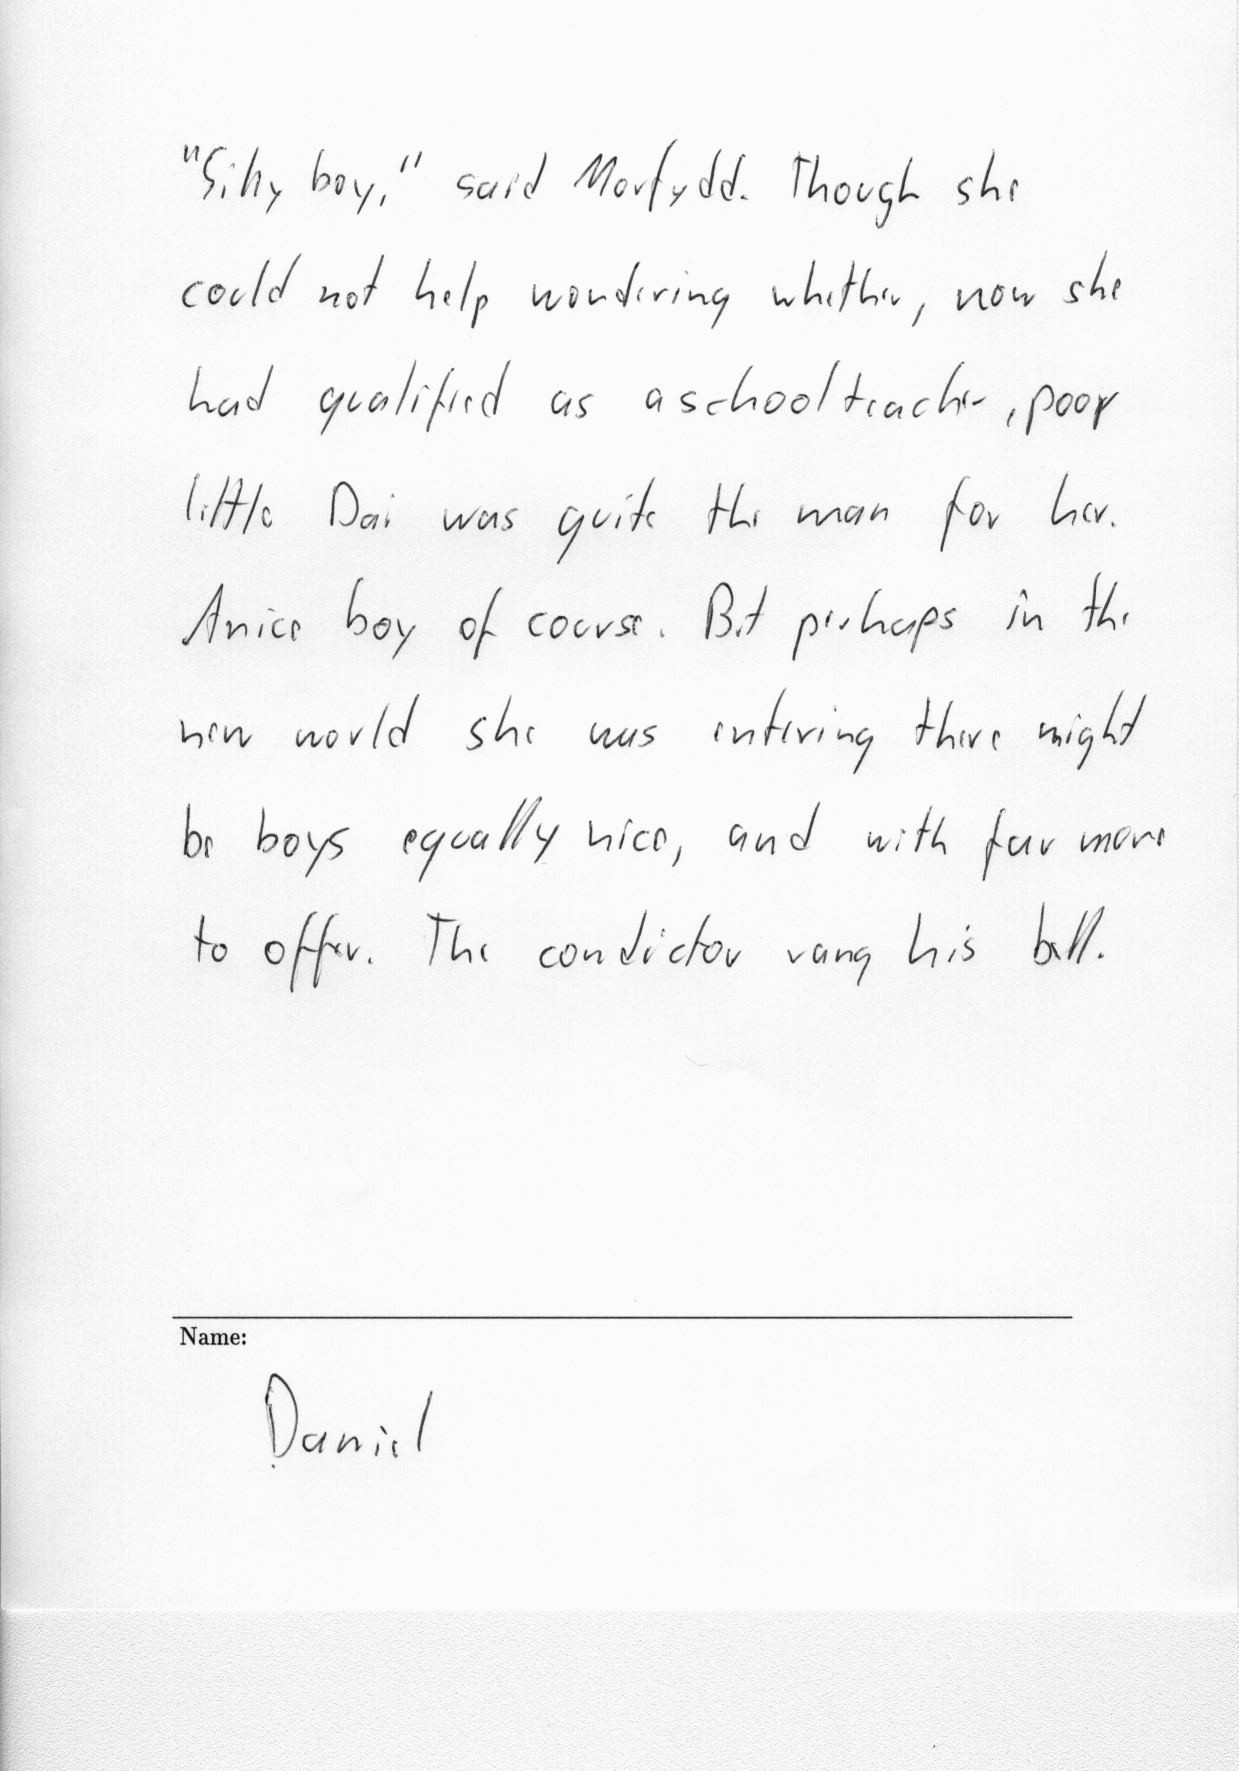 "Silly boy," said Morfydd. Though she
could not help wondering whether, now she
had qualified as a schoolteacher, poor
little Dai was quite the man for her.
A nice boy of course. But perhaps in the
new world she was entering there might
be boys equally nice, and with far more
to offer. The conductor rang his bell.
Name:
Daniel